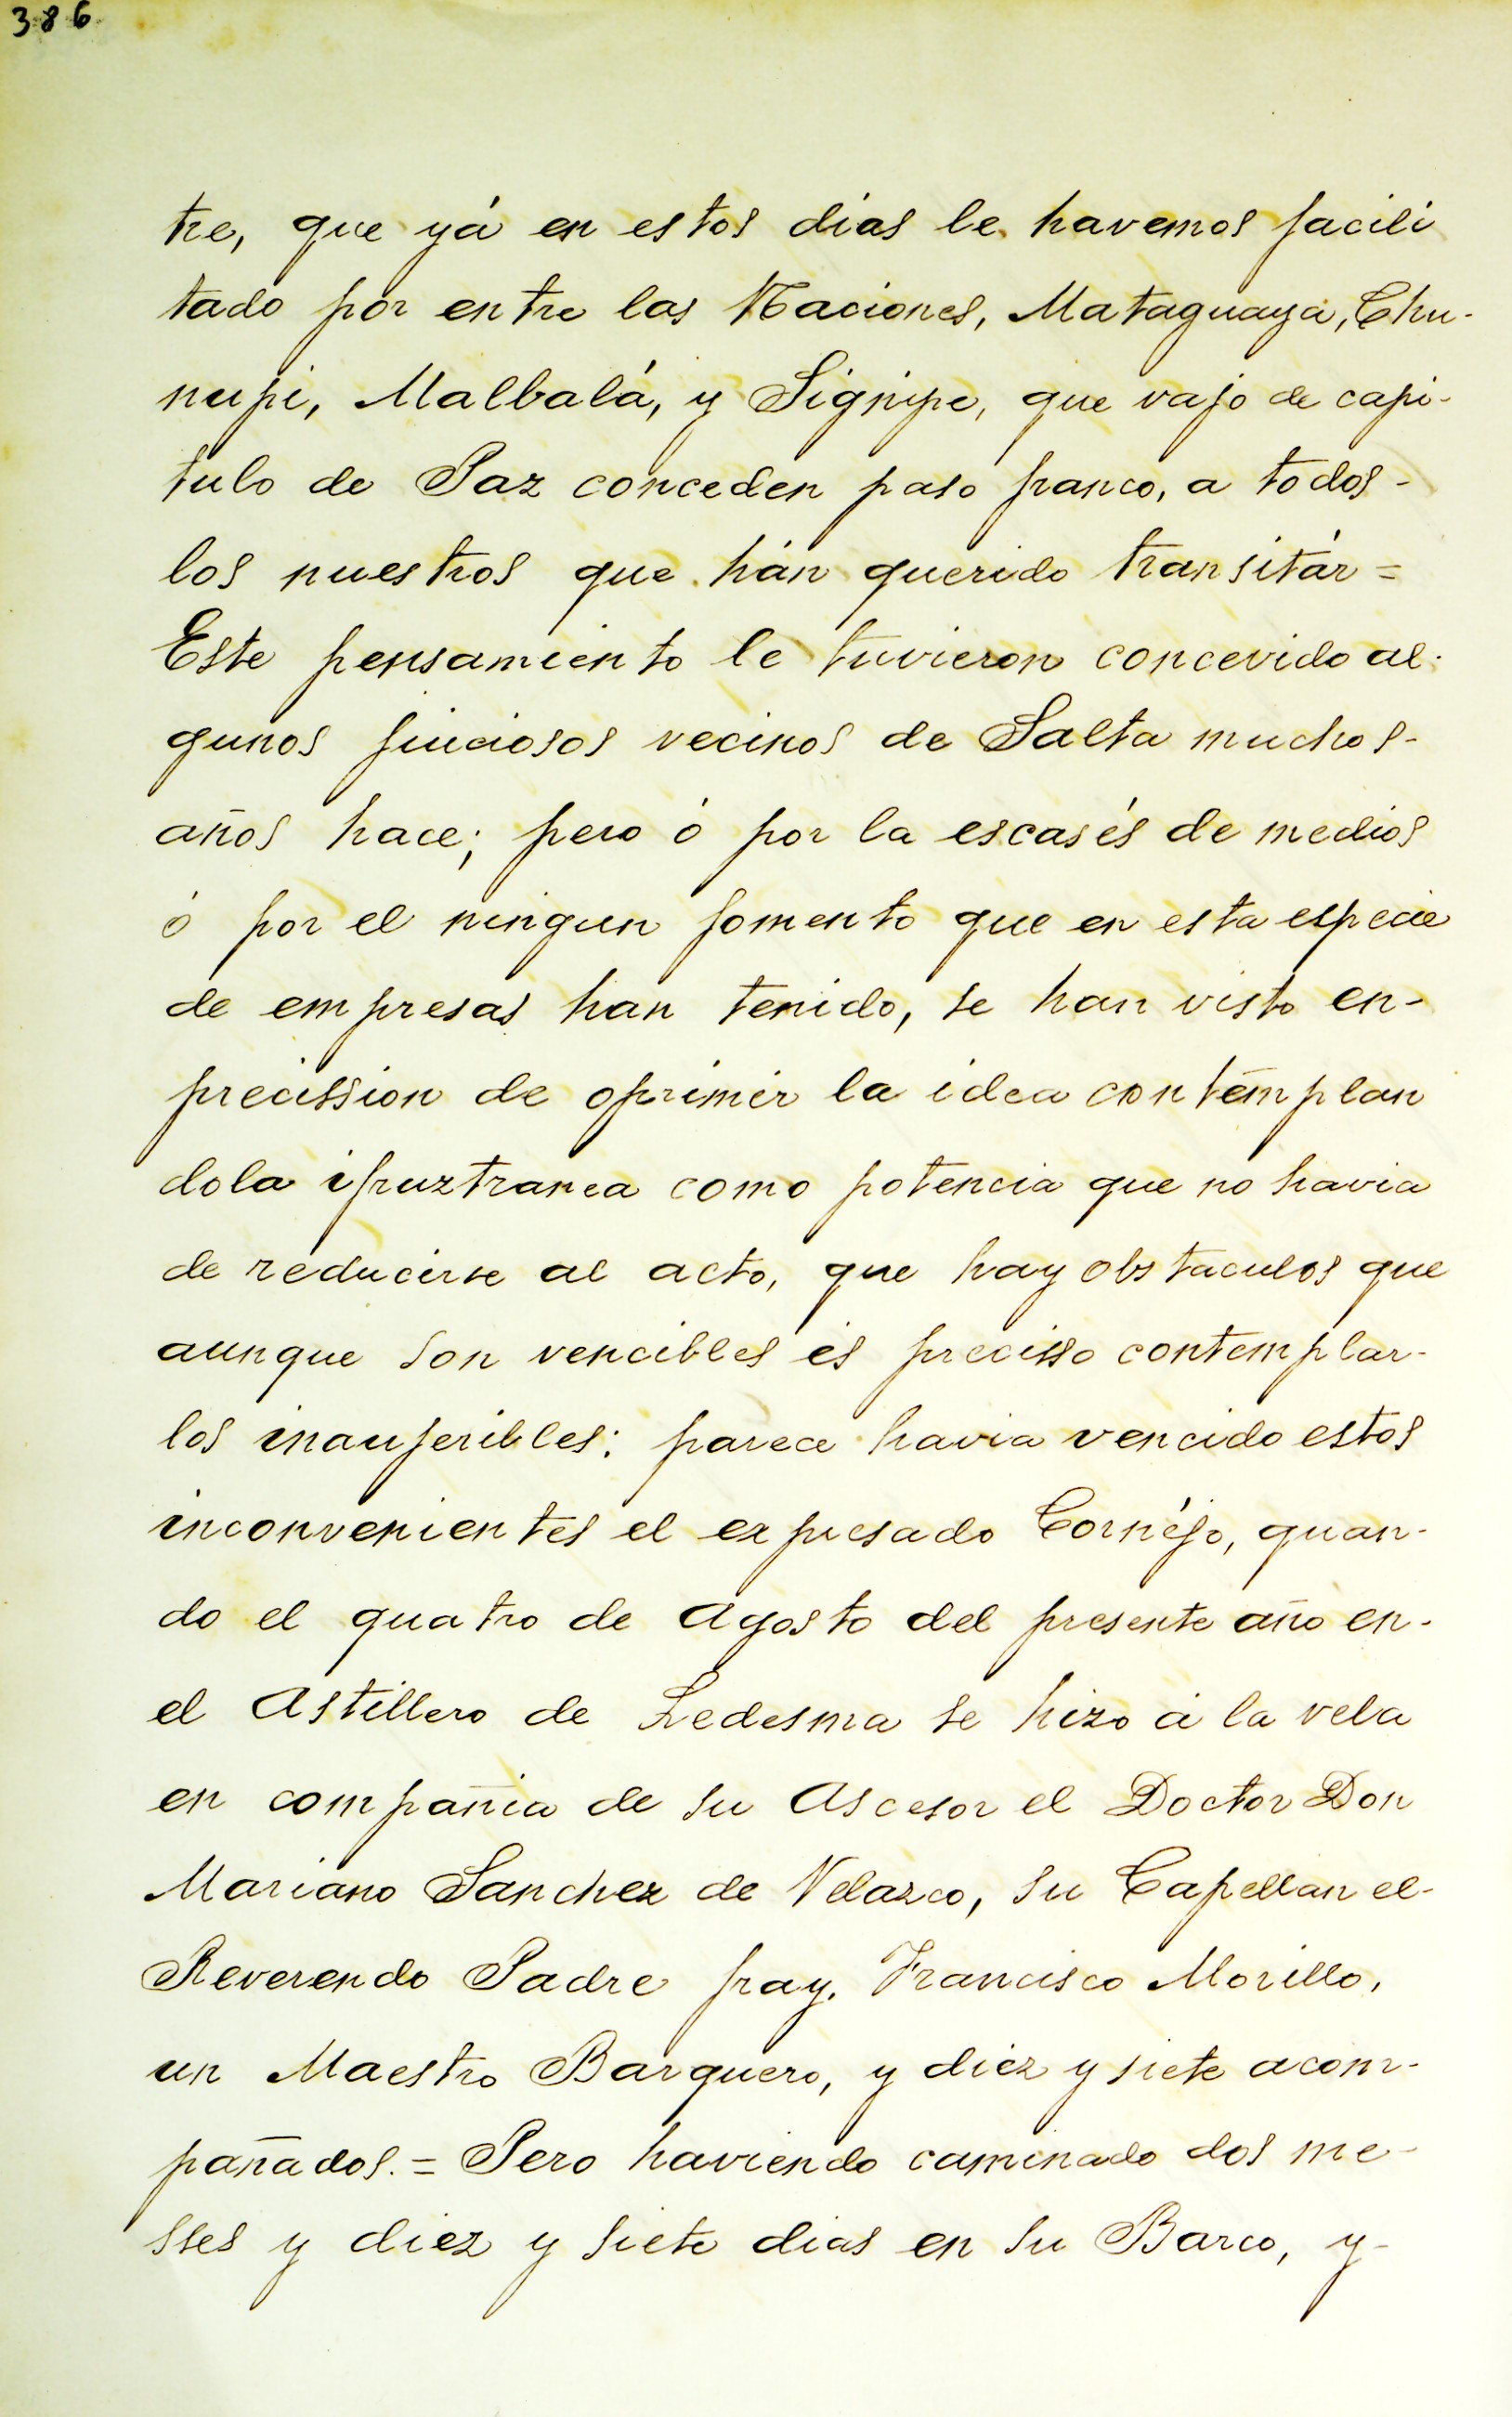 386
tre, que yá en estos dias le havemos facili
tado por entre las Naciones, Mataguaya, Chu-
nupi, Malbalá, y Signipe, que vajo de capi-
tulo de Paz conceden paso franco, a todos-
los nuestros que hán querido transitár =
Este pensamiento le tuvieron concevido al-
gunos juiciosos vecinos de Salta muchos-
años hace; pero ó por la escasés de medios
ó por el ningun fomento que en esta especie
de empresas han tenido, se han visto en-
precission de oprimir la idea contemplan
dola ifruztranea como potencia que no havia
de reducirse al acto, que hay obstaculos que
aunque son vencibles és precisso contemplar-
los inauferibles: parece havia vencido estos
inconvenientes el expresado Cornéjo, quan-
do el quatro de Agosto del presente año en-
el Astillero de Ledesma se hizo á la vela
en compañia de su Ascesor el Doctor Don
Mariano Sanchez de Velazco, su Capellan el-
Reverendo Padre fray. Francisco Morillo,
un Maestro Barquero, y diez y siete acom-
pañados. = Pero haviendo caminado dos me-
sses y diez y siete dias en su Barco, y-